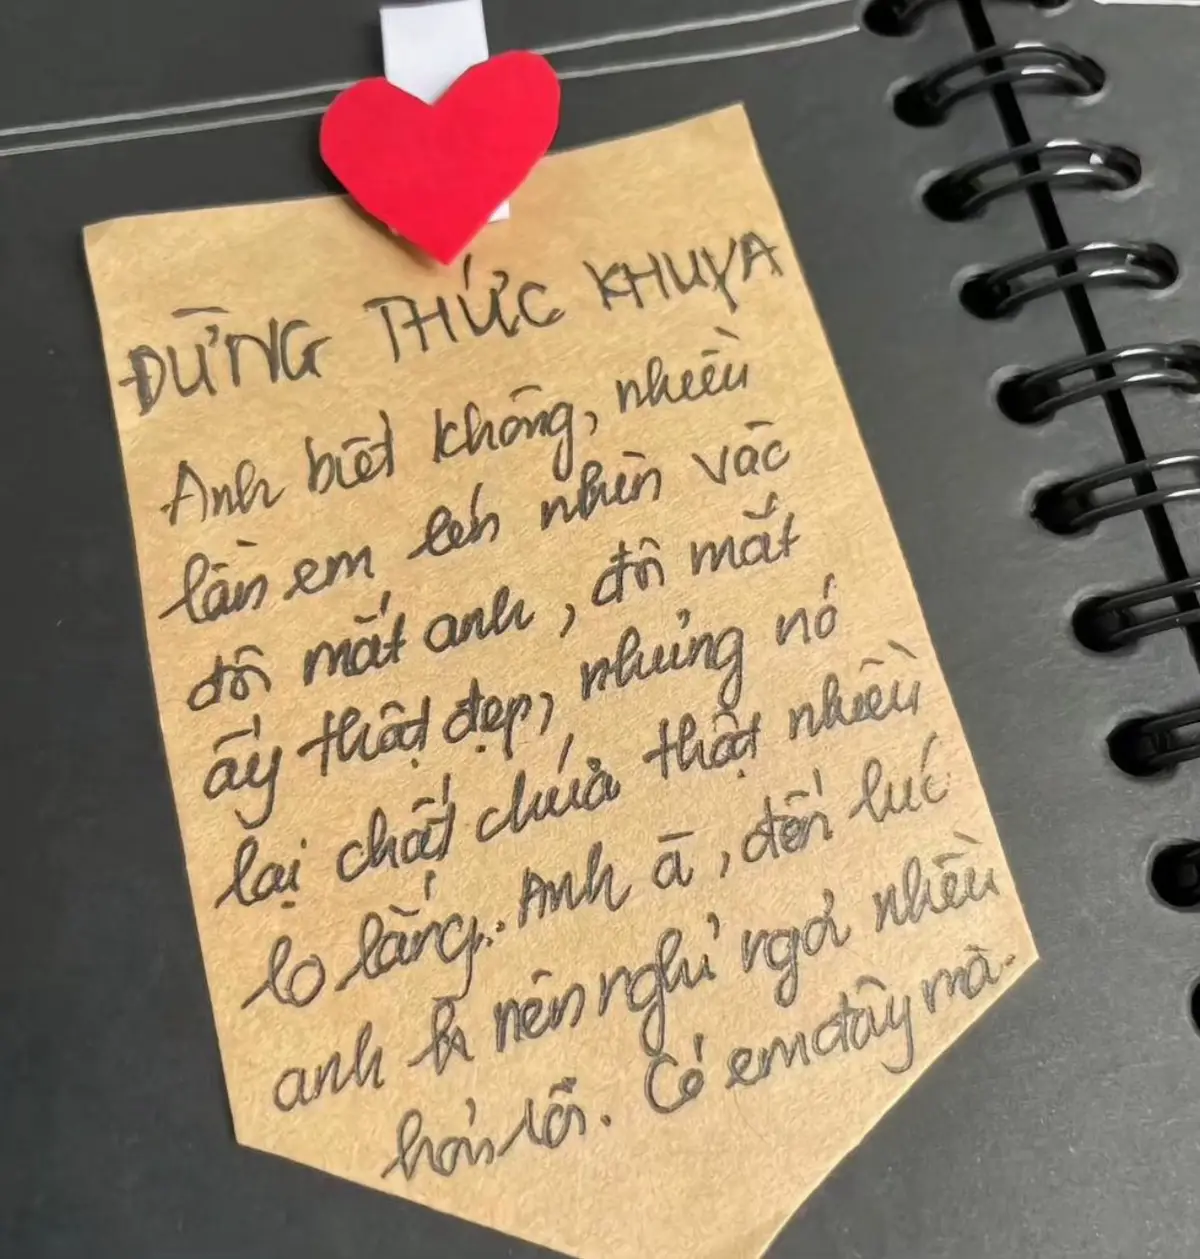 ĐỪNG THỨC KHUYA
Anh biết không, nhiều
lần em lén nhìn vào
đôi mắt anh, đôi mắt
ấy thật đẹp, nhưng nó
lại chất chứa thật nhiều
lo lắng... Anh à, đến lúc
anh nên nghỉ ngơi nhiều
hơn rồi. Có em đây mà.